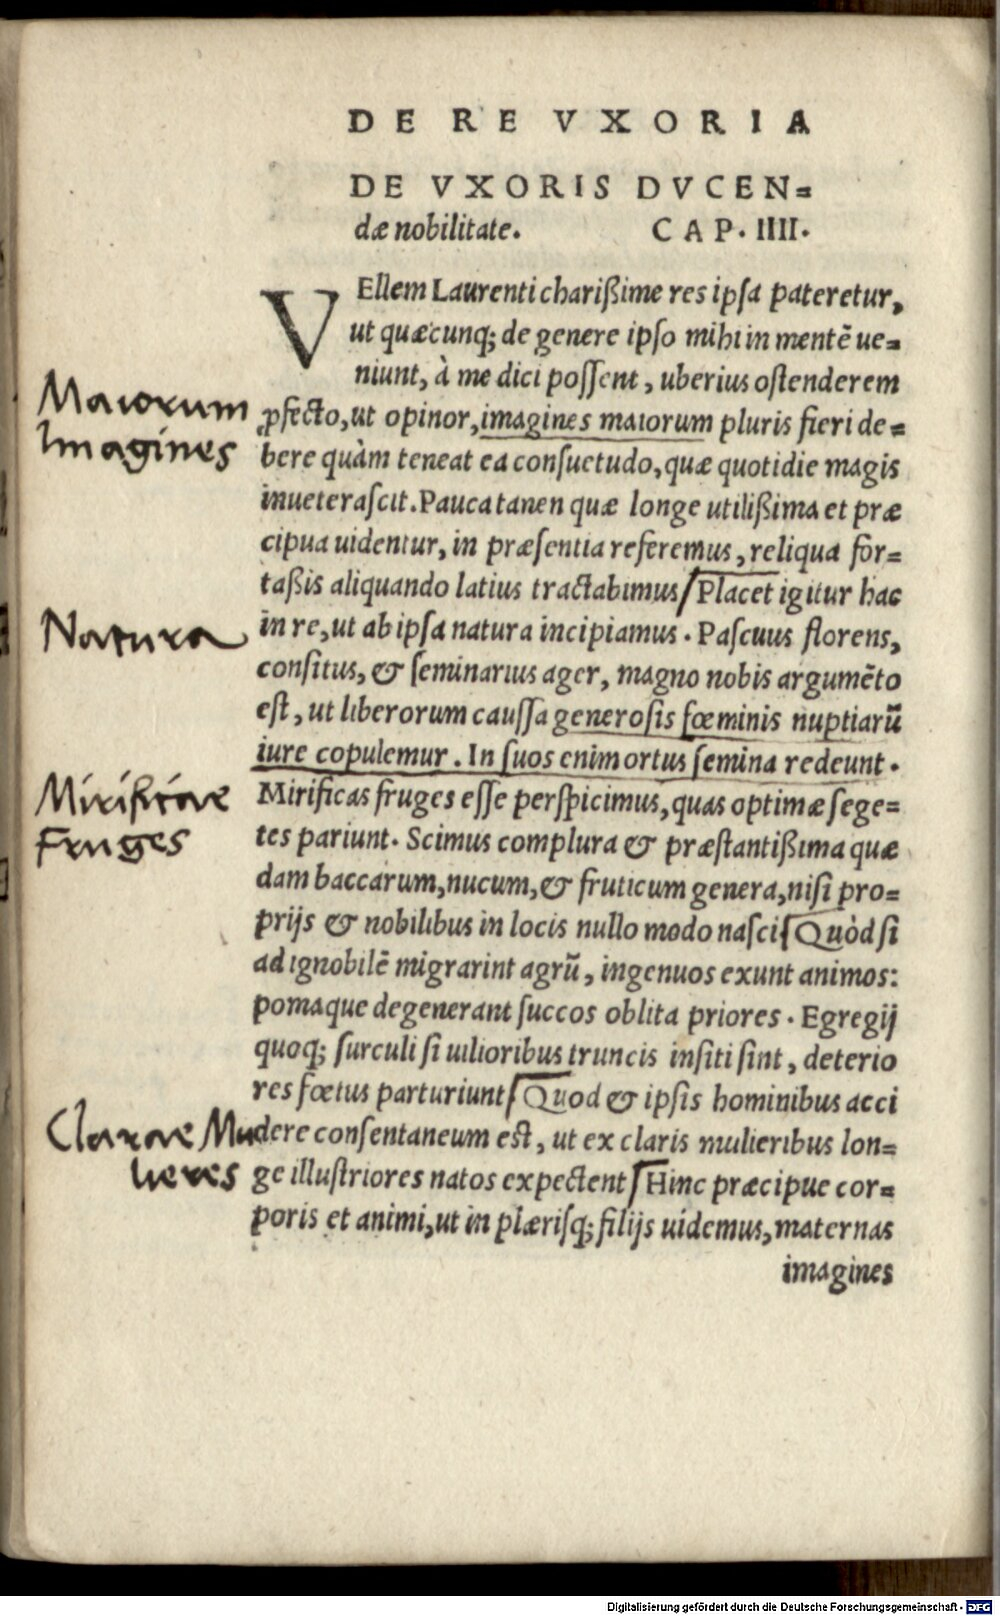 DE RE VXORIA
DE VXORIS DVCEN=
dæ nobilitate. CAP. IIII.
VEllem Laurenti charißime res ipſa pateretur,
ut quæcunq; de genere ipſo mihi in mentē ue=
niunt, à me dici poſſent, uberius oſtenderem
Maiorum
ꝓfecto, ut opinor, imagines maiorum pluris fieri de=
Imagines
bere quàm teneat ea conſuetudo, quæ quotidie magis
inueteraſcit. Pauca tanen quæ longe utilißima et præ
cipua uidentur, in præſentia referemus, reliqua for=
taßis aliquando latius tractabimus/ Placet igitur hac
Natura
in re, ut ab ipſa natura incipiamus. Paſcuus florens,
conſitus, & ſeminarius ager, magno nobis argumēto
eſt, ut liberorum cauſſa generoſis fœminis nuptiarū
iure copulemur. In ſuos enim ortus ſemina redeunt.
Mirificae
Mirificas fruges eſſe perſpicimus, quas optimæ ſege=
Fruges
tes pariunt. Scimus complura & præſtantißima quæ
dam baccarum, nucum, & fruticum genera, niſi pro=
prijs & nobilibus in locis nullo modo naſci/ Quòd ſi
ad ignobilē migrarint agrū, ingenuos exunt animos:
pomaque degenerant ſuccos oblita priores. Egregij
quoq; ſurculi ſi uilioribus truncis inſiti ſint, deterio
res fœtus parturiunt/ Quod & ipſis hominibus acci
Clarae Mu
dere conſentaneum eſt, ut ex claris mulieribus lon=
lieres
ge illuſtriores natos expectent/ Hinc præcipue cor=
poris et animi, ut in plæriſq; filijs uidemus, maternas
imagines
Digitalisierung gefördert durch die Deutsche Forschungsgemeinschaft - DFG